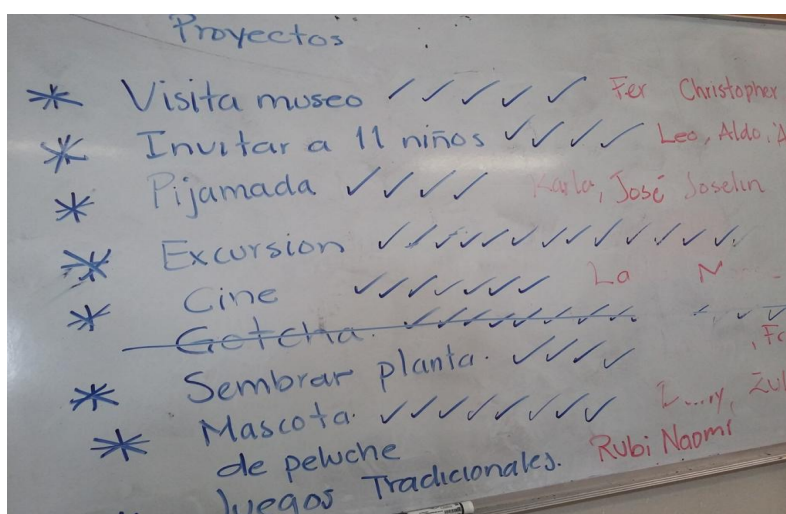 Proyectos
* Visita museo ✓✓✓✓✓ Fer Christopher
* Invitar a 11 niños ✓✓✓✓ Leo, Aldo,
* Pijamada ✓✓✓✓ Karla, José Joselin
* Excursion ✓✓✓✓✓✓✓✓✓✓✓✓✓
* Cine ✓✓✓✓✓✓✓ La
Gotcha. ✓✓✓✓✓✓✓✓ ✓✓✓
* Sembrar planta. ✓✓✓✓
* Mascota. ✓✓✓✓✓✓✓✓
de peluche Rubi Naomi
Juegos Tradicionales.